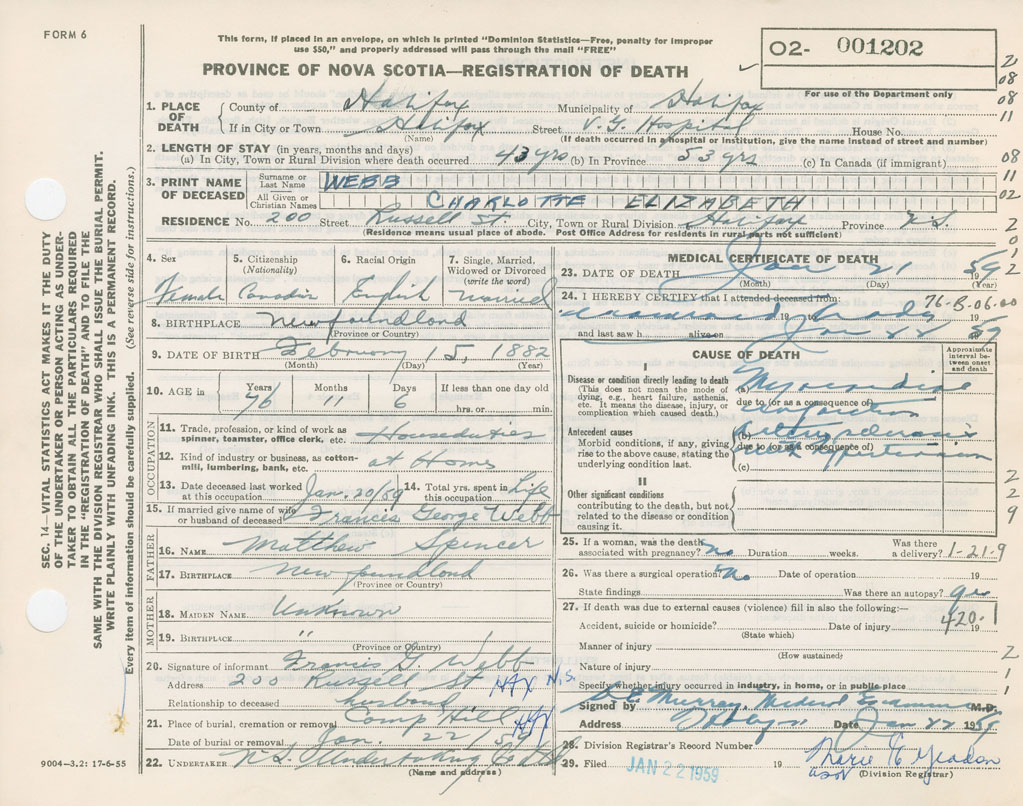 FORM 6
This form, if placed in an envelope, on which is printed "Dominion Statistics—Free, penalty for improper
use $50," and properly addressed will pass through the mail "FREE"
PROVINCE OF NOVA SCOTIA—REGISTRATION OF DEATH
02- 001202
For use of the Department only
20
08
08
11
08
11
02
2
0
1
2
SEC. 14—VITAL STATISTICS ACT MAKES IT THE DUTY
OF THE UNDERTAKER OR PERSON ACTING AS UNDER-
TAKER TO OBTAIN ALL THE PARTICULARS REQUIRED
IN THE "REGISTRATION OF DEATH" AND TO FILE THE
SAME WITH THE DIVISION REGISTRAR WHO SHALL ISSUE THE BURIAL PERMIT.
WRITE PLAINLY WITH UNFADING INK. THIS IS A PERMANENT RECORD.
Every item of information should be carefully supplied. (See reverse side for instructions.)
1. PLACE OF DEATH County of Halifax Municipality of Halifax
If in City or Town Halifax Street V. G. Hospital House No.
(Name) (If death occurred in a hospital or institution, give the name instead of street and number)
2. LENGTH OF STAY (in years, months and days)
(a) In City, Town or Rural Division where death occurred 43 yrs (b) In Province 53 yrs (c) In Canada (if immigrant)
3. PRINT NAME OF DECEASED Surname or Last Name WEBB
All Given or Christian Names CHARLOTTE ELIZABETH
RESIDENCE No. 200 Street Russell St. City, Town or Rural Division Halifax Province N.S.
(Residence means usual place of abode. Post Office Address for residents in rural parts not sufficient)
4. Sex 5. Citizenship (Nationality) 6. Racial Origin 7. Single, Married, Widowed or Divorced (write the word)
Female Canadian English married
8. BIRTHPLACE Newfoundland
(Province or Country)
9. DATE OF BIRTH February 15, 1882
(Month) (Day) (Year)
10. AGE in Years Months Days If less than one day old
76 11 6 hrs. or min.
OCCUPATION
11. Trade, profession, or kind of work as spinner, teamster, office clerk, etc. Houseduties
12. Kind of industry or business, as cotton-mill, lumbering, bank, etc. at Home
13. Date deceased last worked at this occupation Jan. 20/59 14. Total yrs. spent in this occupation Life
15. If married give name of wife or husband of deceased Francis George Webb
FATHER
16. NAME Matthew Spencer
17. BIRTHPLACE Newfoundland
(Province or Country)
MOTHER
18. MAIDEN NAME Unknown
19. BIRTHPLACE "
(Province or Country)
20. Signature of informant Francis G Webb
Address 200 Russell St Hfx N.S.
Relationship to deceased husband
21. Place of burial, cremation or removal Camp Hill Hfx
Date of burial or removal Jan. 22/59
22. UNDERTAKER N.S. Undertaking
(Name and address)
9004—3.2: 17-6-55
MEDICAL CERTIFICATE OF DEATH
23. DATE OF DEATH Jan 21 1959
(Month) (Day) (Year)
24. I HEREBY CERTIFY that I attended deceased from:
76-B-06.00
examined body
and last saw h alive on Jan 22 1959
CAUSE OF DEATH Approximate interval between onset and death
I
Disease or condition directly leading to death
(This does not mean the mode of dying, e.g., heart failure, asthenia, etc. It means the disease, injury, or complication which caused death.)
Myocardial
due to (or as a consequence of)
infarction
Antecedent causes
Morbid conditions, if any, giving rise to the above cause, stating the underlying condition last.
(b)
due to (or as a consequence of)
hypertension
(c)
II
Other significant conditions
contributing to the death, but not related to the disease or condition causing it.
2
2
9
25. If a woman, was the death associated with pregnancy? No Duration weeks. Was there a delivery? 1-21-9
26. Was there a surgical operation? No Date of operation 19
State findings Was there an autopsy? yes
27. If death was due to external causes (violence) fill in also the following:—
420-1
Accident, suicide or homicide? Date of injury 19
(State which)
Manner of injury
(How sustained)
Nature of injury
Specify whether injury occurred in industry, in home, or in public place
2
1
1
Signed by Murray, Medical Examiner M.D.
Address Date Jan 22 1959
28. Division Registrar's Record Number
29. Filed JAN 22 1959 19 Marie E Yeadon
(Division Registrar)